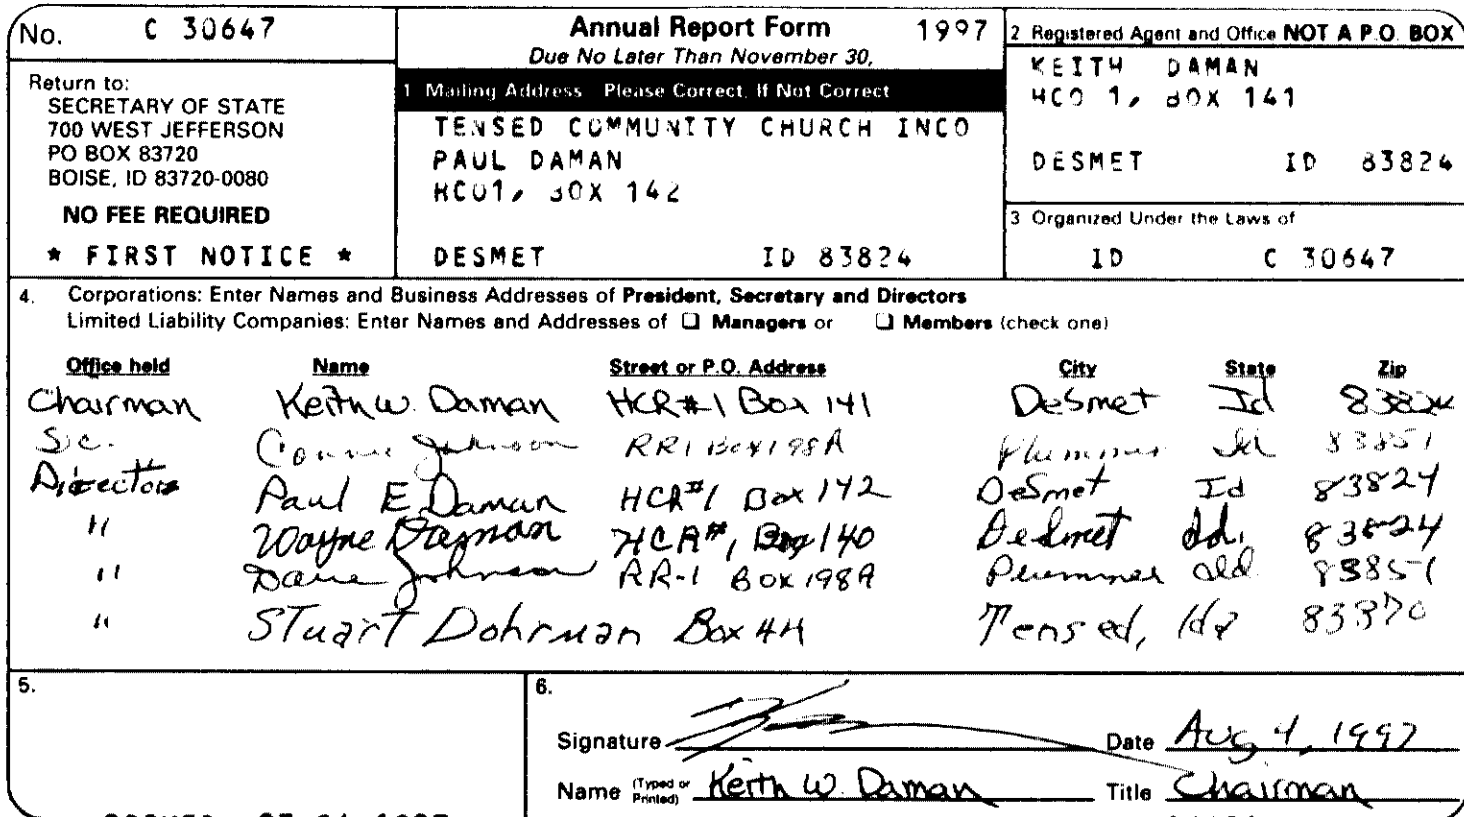 No. C 30647
Return to:
SECRETARY OF STATE
700 WEST JEFFERSON
PO BOX 83720
BOISE, ID 83720-0080
NO FEE REQUIRED
* FIRST NOTICE *
Annual Report Form 1997
Due No Later Than November 30,
1 Mailing Address Please Correct, If Not Correct
TENSED COMMUNITY CHURCH INCO
PAUL DAMAN
HCO1, BOX 142
DESMET ID 83824
2 Registered Agent and Office NOT A P.O. BOX
KEITH DAMAN
HCO 1, BOX 141
DESMET ID 83824
3 Organized Under the Laws of
ID C 30647
4. Corporations: Enter Names and Business Addresses of President, Secretary and Directors
Limited Liability Companies: Enter Names and Addresses of ❑ Managers or ❑ Members (check one)
Office held Name Street or P.O. Address City State Zip
Chairman Keith W. Daman HCR#1 Box 141 DeSmet Id 83824
Sec. Connie Johnson RR1 Box 198A Plummer Id 83851
Directors Paul E Daman HCR#1 Box 142 DeSmet Id 83824
" Wayne Daman HCR#1 Box 140 DeSmet Id. 83824
" Dave Johnson RR-1 Box 198A Plummer Id. 83851
" Stuart Dohrman Box 44 Tensed, Ida 83870
5.
6.
Signature Date Aug 4, 1997
Name (Typed or Printed) Keith W. Daman Title Chairman